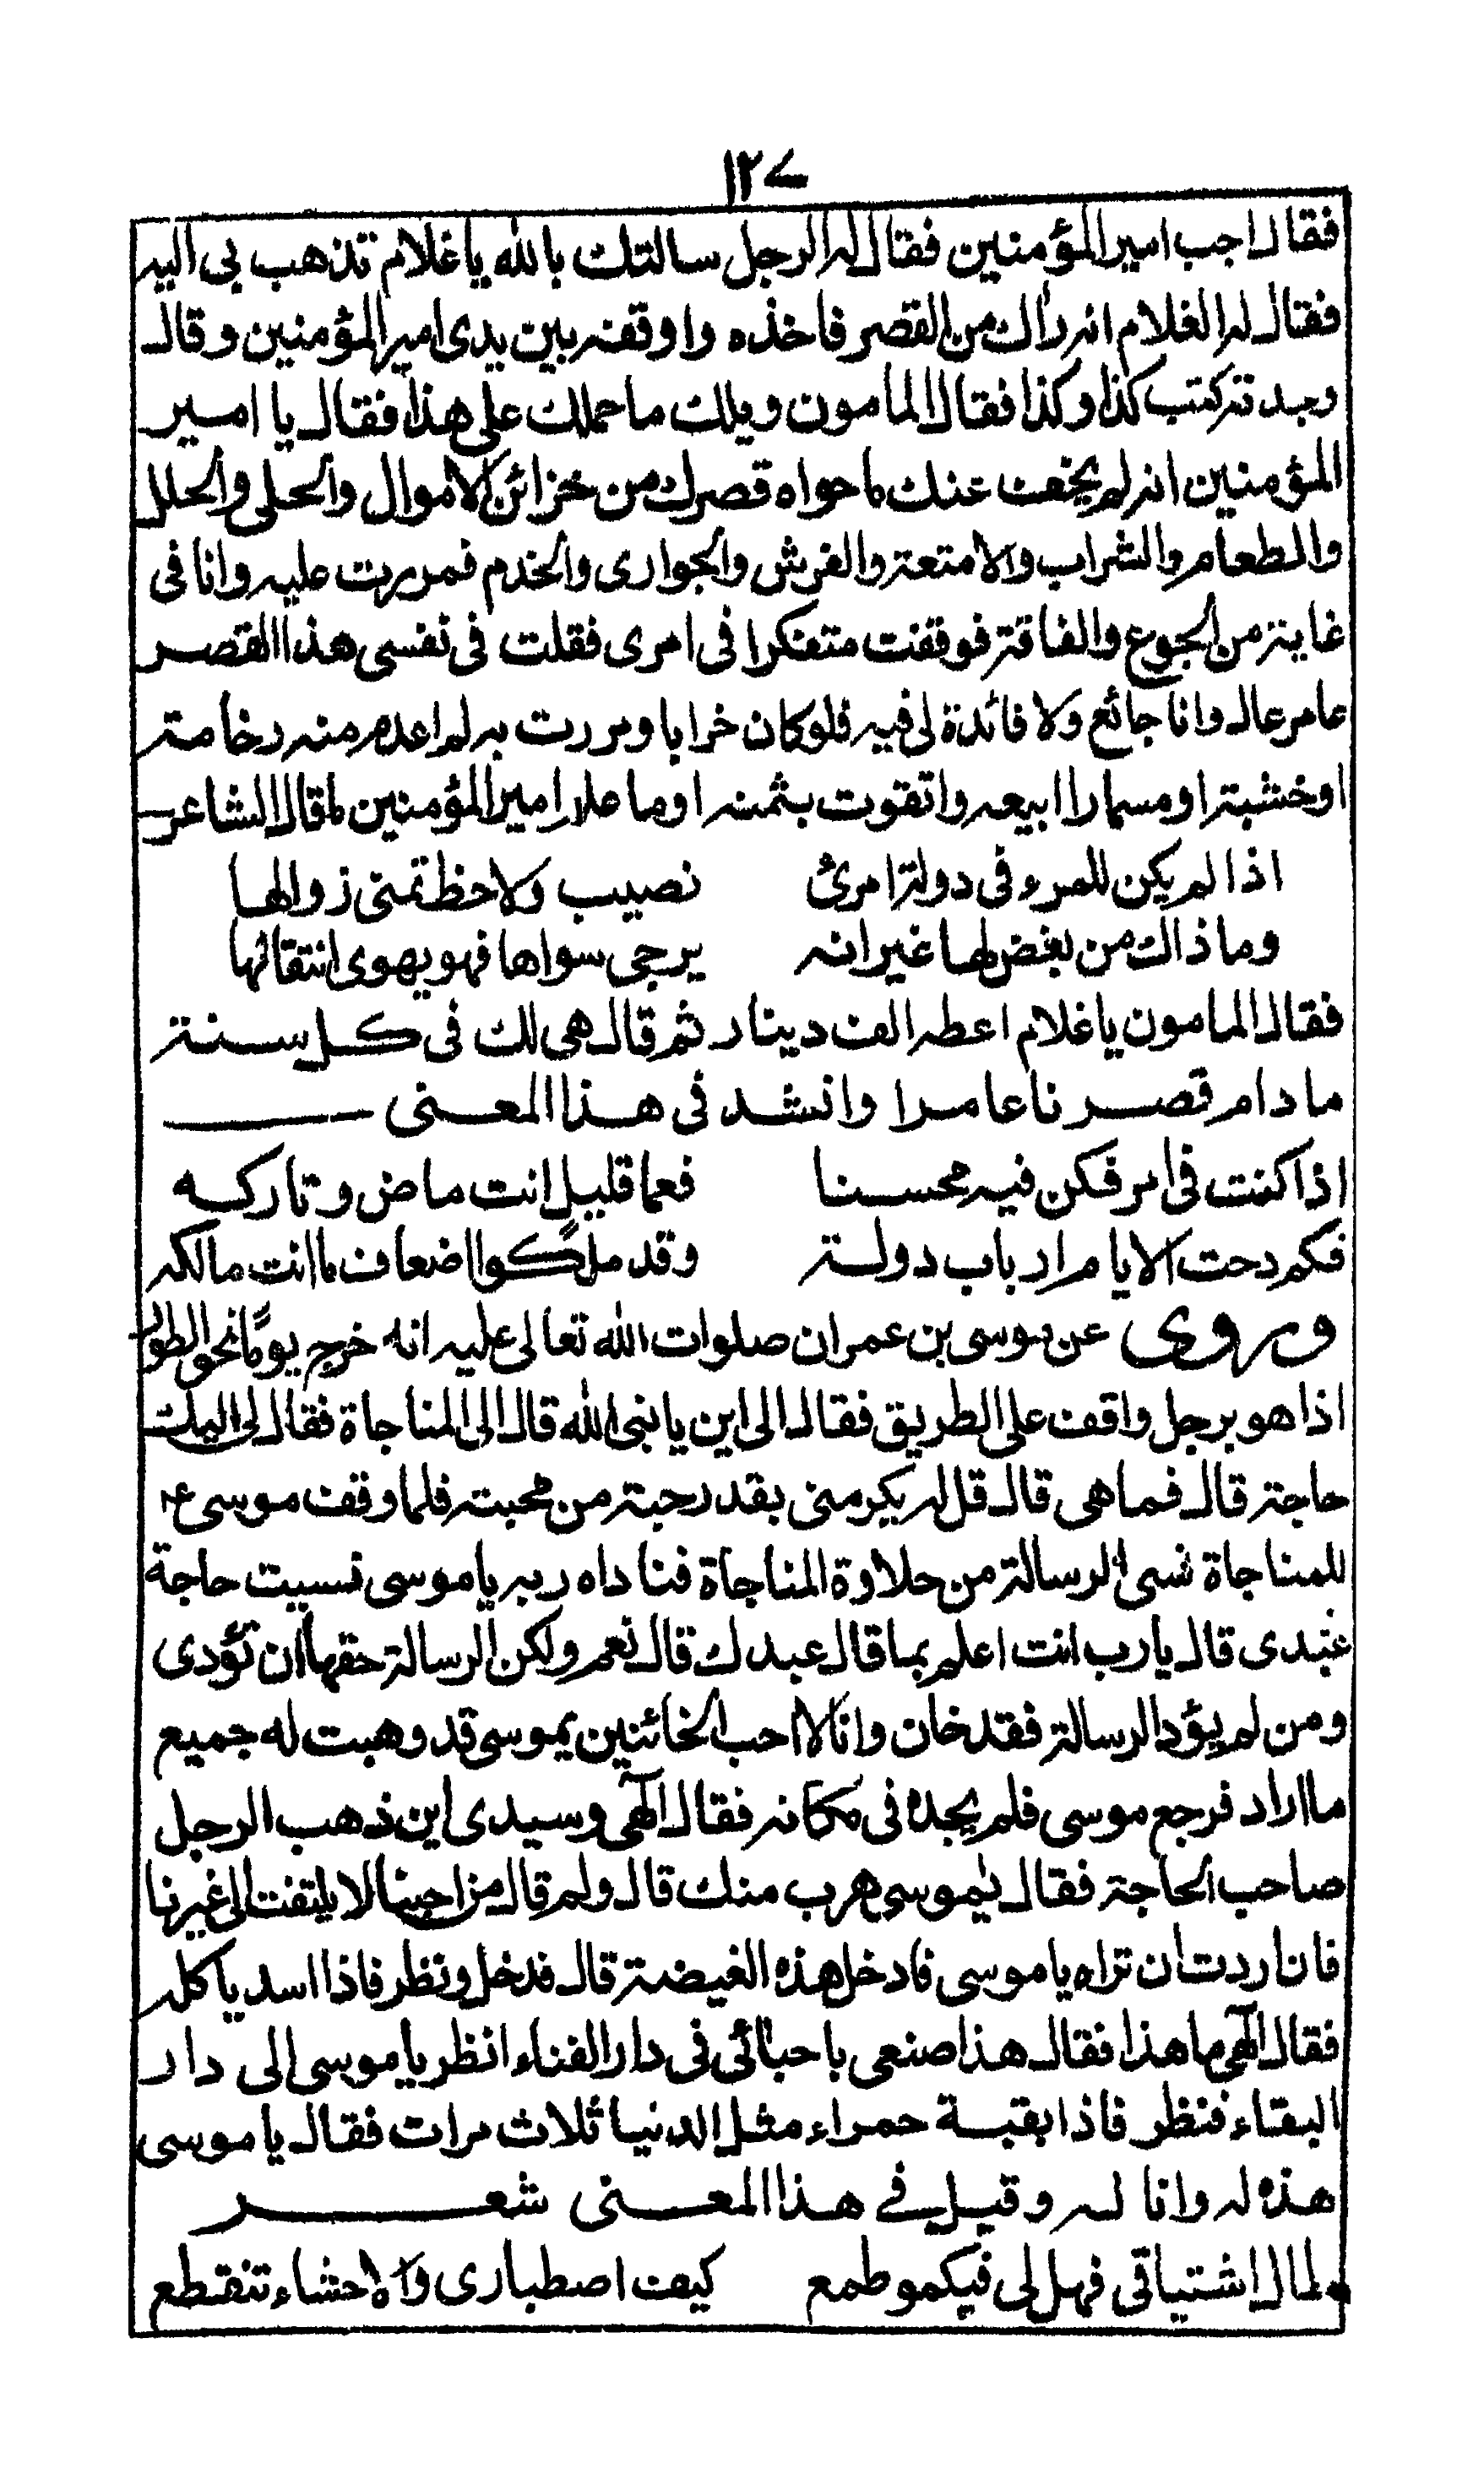 ١٢٧
فقال اجب امير المؤمنين فقال له الرجل سالتك بالله يا غلام تذهب بى اليه
فقال له الغلام انه راك من القصر فاخذه واوقفه بين يدى امير المؤمنين وقال
وجدته كتب كذا وكذا فقال المامون ويلك ما حملك على هذا فقال يا امير
المؤمنين انه لم يخف عنك ما حواه قصرك من خزائن الاموال والحلى والحلل
والطعام والشراب والامتعة والفرش والجوارى والخدم فمررت عليه وانا فى
غاية من الجوع والفاقة فوقفت متفكرا فى امرى فقلت فى نفسى هذا القصر
عامر عال وانا جائع ولا فائدة لى فيه فلو كان خرابا ومررت به لم اعدم منه رخامة
او خشبة او مسمارا ابيعه واتقوت بثمنه او ما علم امير المؤمنين ما قال الشاعر
اذا لم يكن للمرء فى دولة امرئ نصيب ولا حظ تمنى زوالها
وما ذاك من بغض لها غير انه يرجى سواها فهو يهوى انتقالها
فقال المامون يا غلام اعطه الف دينار ثم قال هى لك فى كل سنة
ما دام قصرنا عامرا وانشد فى هذا المعنى
اذا كنت فى امر فكن فيه محسنا فعما قليل انت ماض وتاركه
فكم دحت الايام ارباب دولة وقد ملكوا اضعاف ما انت مالكه
وروى عن موسى بن عمران صلوات الله تعالى عليه انه خرج يومًا نحو الطور
اذا هو برجل واقف على الطريق فقال الى اين يا نبى الله قال الى المناجاة فقال لى اليك
حاجة قال فما هى قال قل له يكرمنى بقدر حبة من محبته فلما وقف موسى ع
للمناجاة نسى الرسالة من حلاوة المناجاة فناداه ربه يا موسى نسيت حاجة
عبدى قال يا رب انت اعلم بما قال عبدك قال نعم ولكن الرسالة حقها ان تؤدى
ومن لم يؤد الرسالة فقد خان وانا لا احب الخائنين يموسى قد وهبت له جميع
ما اراد فرجع موسى فلم يجده فى مكانه فقال الٓهى وسيدى اين ذهب الرجل
صاحب الحاجة فقال يٰموسى هرب منك قال ولم قال من احبنا لا يلتفت الى غيرنا
فان اردت ان تراه يا موسى فادخل هذه الغيضة قال فدخل ونظر فاذا اسد ياكله
فقال الٓهى ما هذا فقال هذا صنعى باحبائى فى دار الفناء انظر يا موسى الى دار
البقاء فنظر فاذا بقبة حمراء مثل الدنيا ثلاث مرات فقال يا موسى
هذه له وانا له وقيل فے هذا المعنى شعر
لمال اشتياقى فهل لى فيكمو طمع كيف اصطبارى والاحشاء تنقطع